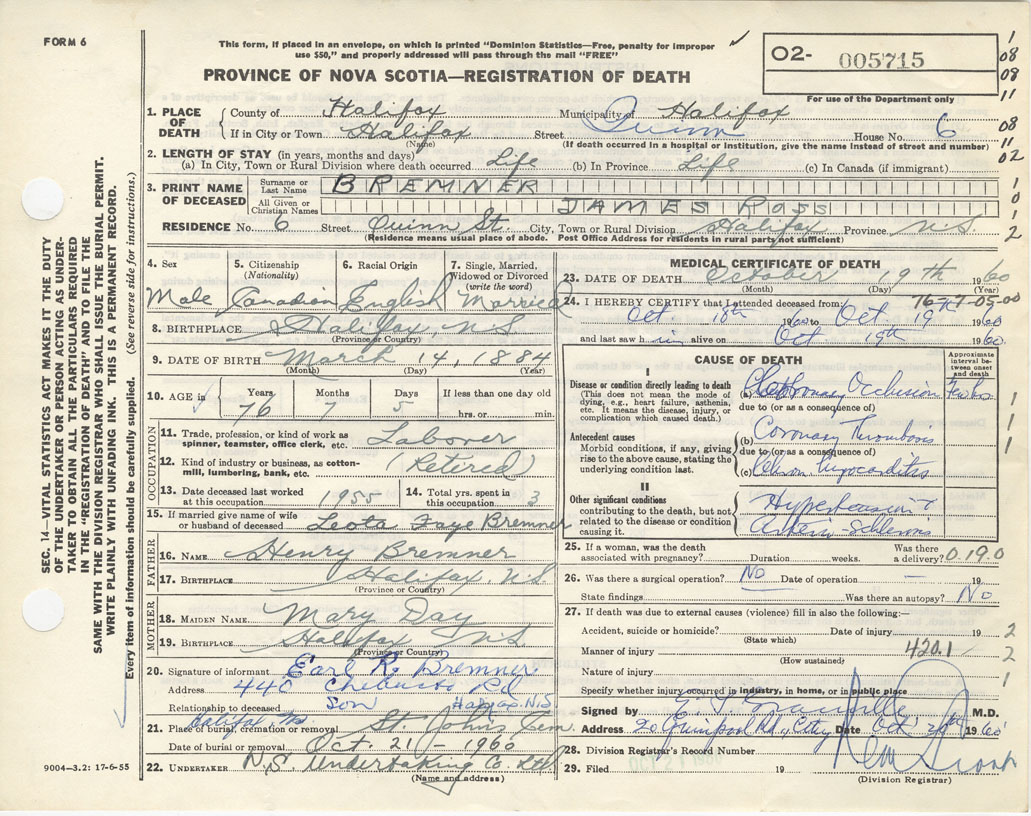 FORM 6
This form, if placed in an envelope, on which is printed "Dominion Statistics—Free, penalty for improper
use $50," and properly addressed will pass through the mail "FREE"
PROVINCE OF NOVA SCOTIA—REGISTRATION OF DEATH
02- 005715
For use of the Department only
1
08
08
11
08
11
02
1. PLACE OF DEATH
County of Halifax Municipality of Halifax
If in City or Town Halifax Street Quinn House No. 6
(Name) (If death occurred in a hospital or institution, give the name instead of street and number)
2. LENGTH OF STAY (in years, months and days)
(a) In City, Town or Rural Division where death occurred Life (b) In Province Life (c) In Canada (if immigrant)
3. PRINT NAME OF DECEASED
Surname or Last Name BREMNER
All Given or Christian Names JAMES ROSS
1
0
1
2
RESIDENCE No. 6 Street Quinn St. City, Town or Rural Division Halifax Province N.S.
(Residence means usual place of abode. Post Office Address for residents in rural party not sufficient)
4. Sex 5. Citizenship (Nationality) 6. Racial Origin 7. Single, Married, Widowed or Divorced (write the word)
Male Canadian English Married
8. BIRTHPLACE Halifax N.S
(Province or Country)
9. DATE OF BIRTH March 14, 1884
(Month) (Day) (Year)
10. AGE in Years Months Days If less than one day
76 7 5 hrs. or min.
OCCUPATION
11. Trade, profession, or kind of work as spinner, teamster, office clerk, etc. Laborer
12. Kind of industry or business, as cotton-mill, lumbering, bank, etc. (Retired)
13. Date deceased last worked at this occupation 1955 14. Total yrs. spent in this occupation 3
15. If married give name of wife or husband of deceased Leota Faye Bremner
FATHER
16. NAME Henry Bremner
17. BIRTHPLACE Halifax N.S.
(Province or Country)
MOTHER
18. MAIDEN NAME Mary Day
19. BIRTHPLACE Halifax N.S
(Province or Country)
20. Signature of informant Earl R. Bremner
Address 440 Chebucto Rd
Relationship to deceased Son Halifax. N.S
21. Place of burial, cremation or removal Halifax St Johns Cem.
Date of burial or removal Oct. 21 - 1960
22. UNDERTAKER N.S. Undertaking Co. Ltd.
(Name and address)
MEDICAL CERTIFICATE OF DEATH
23. DATE OF DEATH October 19th 1960
(Month) (Day) (Year)
24. I HEREBY CERTIFY that I attended deceased from:
76-7-05-00
Oct. 18th 1960 to Oct 19 1960
and last saw him alive on Oct 19th 1960.
CAUSE OF DEATH
Approximate interval between onset and death
I
Disease or condition directly leading to death
(This does not mean the mode of dying, e.g., heart failure, asthenia, etc. It means the disease, injury, or complication which caused death.)
(a) Coronary Occlusion
due to (or as a consequence of)
Antecedent causes
Morbid conditions, if any, giving rise to the above cause, stating the underlying condition last.
(b) Coronary Thrombosis
due to (or as a consequence of)
(c) myocarditis
II
Other significant conditions
contributing to the death, but not related to the disease or condition causing it.
Hypertension
1
1
1
25. If a woman, was the death associated with pregnancy? Duration weeks. Was there a delivery? 0.19.0
26. Was there a surgical operation? No Date of operation — 19
State findings Was there an autopsy? No
27. If death was due to external causes (violence) fill in also the following:—
Accident, suicide or homicide? Date of injury 19
(State which)
Manner of injury 420.1
(How sustained)
Nature of injury
2
2
1
Specify whether injury occurred in industry, in home, or in public place
Signed by M.D.
Address 20 Quinpool Rd, City Date Oct 1960
28. Division Registrar's Record Number
29. Filed OCT 21 1960 19
(Division Registrar)
SEC. 14—VITAL STATISTICS ACT MAKES IT THE DUTY
OF THE UNDERTAKER OR PERSON ACTING AS UNDER-
TAKER TO OBTAIN ALL THE PARTICULARS REQUIRED
IN THE "REGISTRATION OF DEATH" AND TO FILE THE
SAME WITH THE DIVISION REGISTRAR WHO SHALL ISSUE THE BURIAL PERMIT.
WRITE PLAINLY WITH UNFADING INK. THIS IS A PERMANENT RECORD.
Every item of information should be carefully supplied. (See reverse side for instructions.)
9004—3.2: 17-6-55